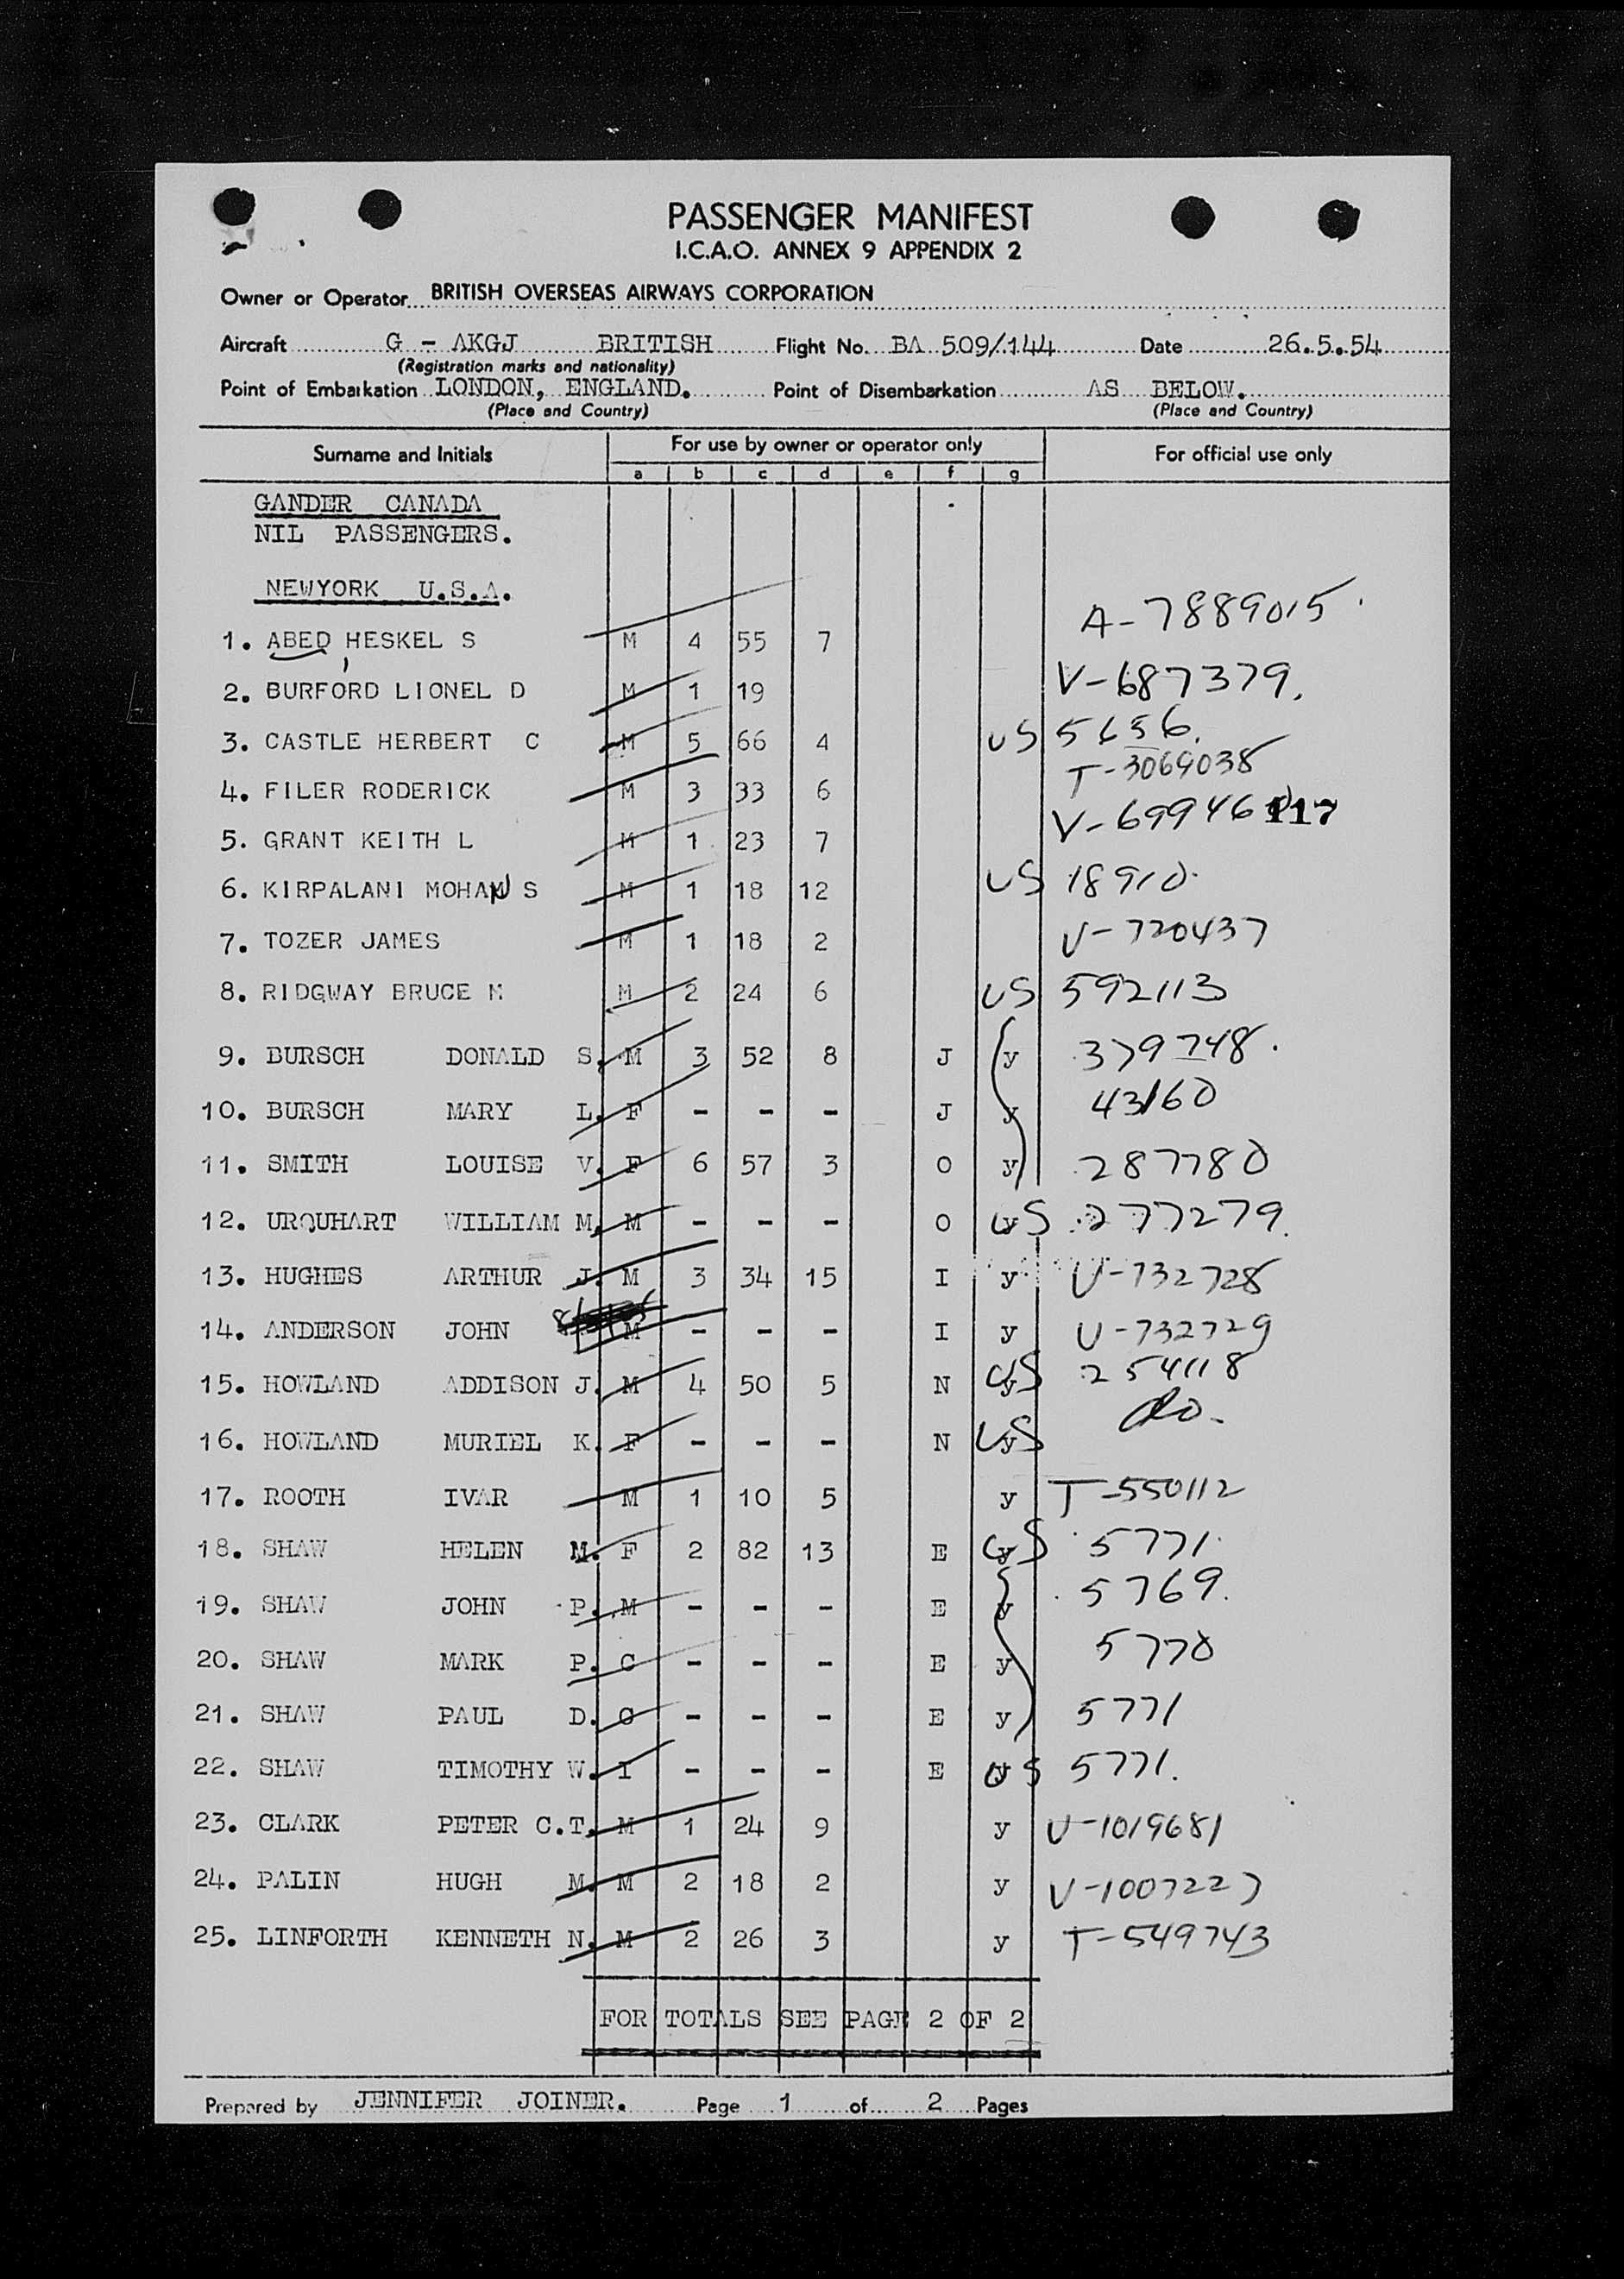 PASSENGER MANIFEST
I.C.A.O. ANNEX 9 APPENDIX 2
Owner or Operator BRITISH OVERSEAS AIRWAYS CORPORATION
Aircraft G - AKGJ BRITISH Flight No. BA 509/144 Date 26.5.54
(Registration marks and nationality)
Point of Embarkation LONDON, ENGLAND. Point of Disembarkation AS BELOW.
(Place and Country) (Place and Country)
Surname and Initials For use by owner or operator only For official use only
a b c d e f g
GANDER CANADA
NIL PASSENGERS.
NEWYORK U.S.A.
1. ABED HESKEL S M 4 55 7 A-7889015
2. BURFORD LIONEL D M 1 19 V-687379.
3. CASTLE HERBERT C M 5 66 4 US 5656.
4. FILER RODERICK M 3 33 6 T-3069038
5. GRANT KEITH L M 1 23 7 V-69946 117
6. KIRPALANI MOHAN S M 1 18 12 US 18910
7. TOZER JAMES M 1 18 2 V-720437
8. RIDGWAY BRUCE M M 2 24 6 US 592113
9. BURSCH DONALD S. M 3 52 8 J y 379748.
10. BURSCH MARY L. F - - - J y 43160
11. SMITH LOUISE V. F 6 57 3 O y 287780
12. URQUHART WILLIAM M. M - - - O US 277279.
13. HUGHES ARTHUR J. M 3 34 15 I y V-732728
14. ANDERSON JOHN M - - - I y V-732729
15. HOWLAND ADDISON J. M 4 50 5 N US 254118
16. HOWLAND MURIEL K. F - - - N US do-
17. ROOTH IVAR M 1 10 5 y T-550112
18. SHAW HELEN M. F 2 82 13 E US 5771
19. SHAW JOHN P. M - - - E y 5769.
20. SHAW MARK P. C - - - E y 5770
21. SHAW PAUL D. C - - - E y 5771
22. SHAW TIMOTHY W. I - - - E US 5771.
23. CLARK PETER C.T. M 1 24 9 y V-1019681
24. PALIN HUGH M. M 2 18 2 y V-1007227
25. LINFORTH KENNETH N. M 2 26 3 y T-549743
FOR TOTALS SEE PAGE 2 OF 2
Prepared by JENNIFER JOINER. Page 1 of 2 Pages